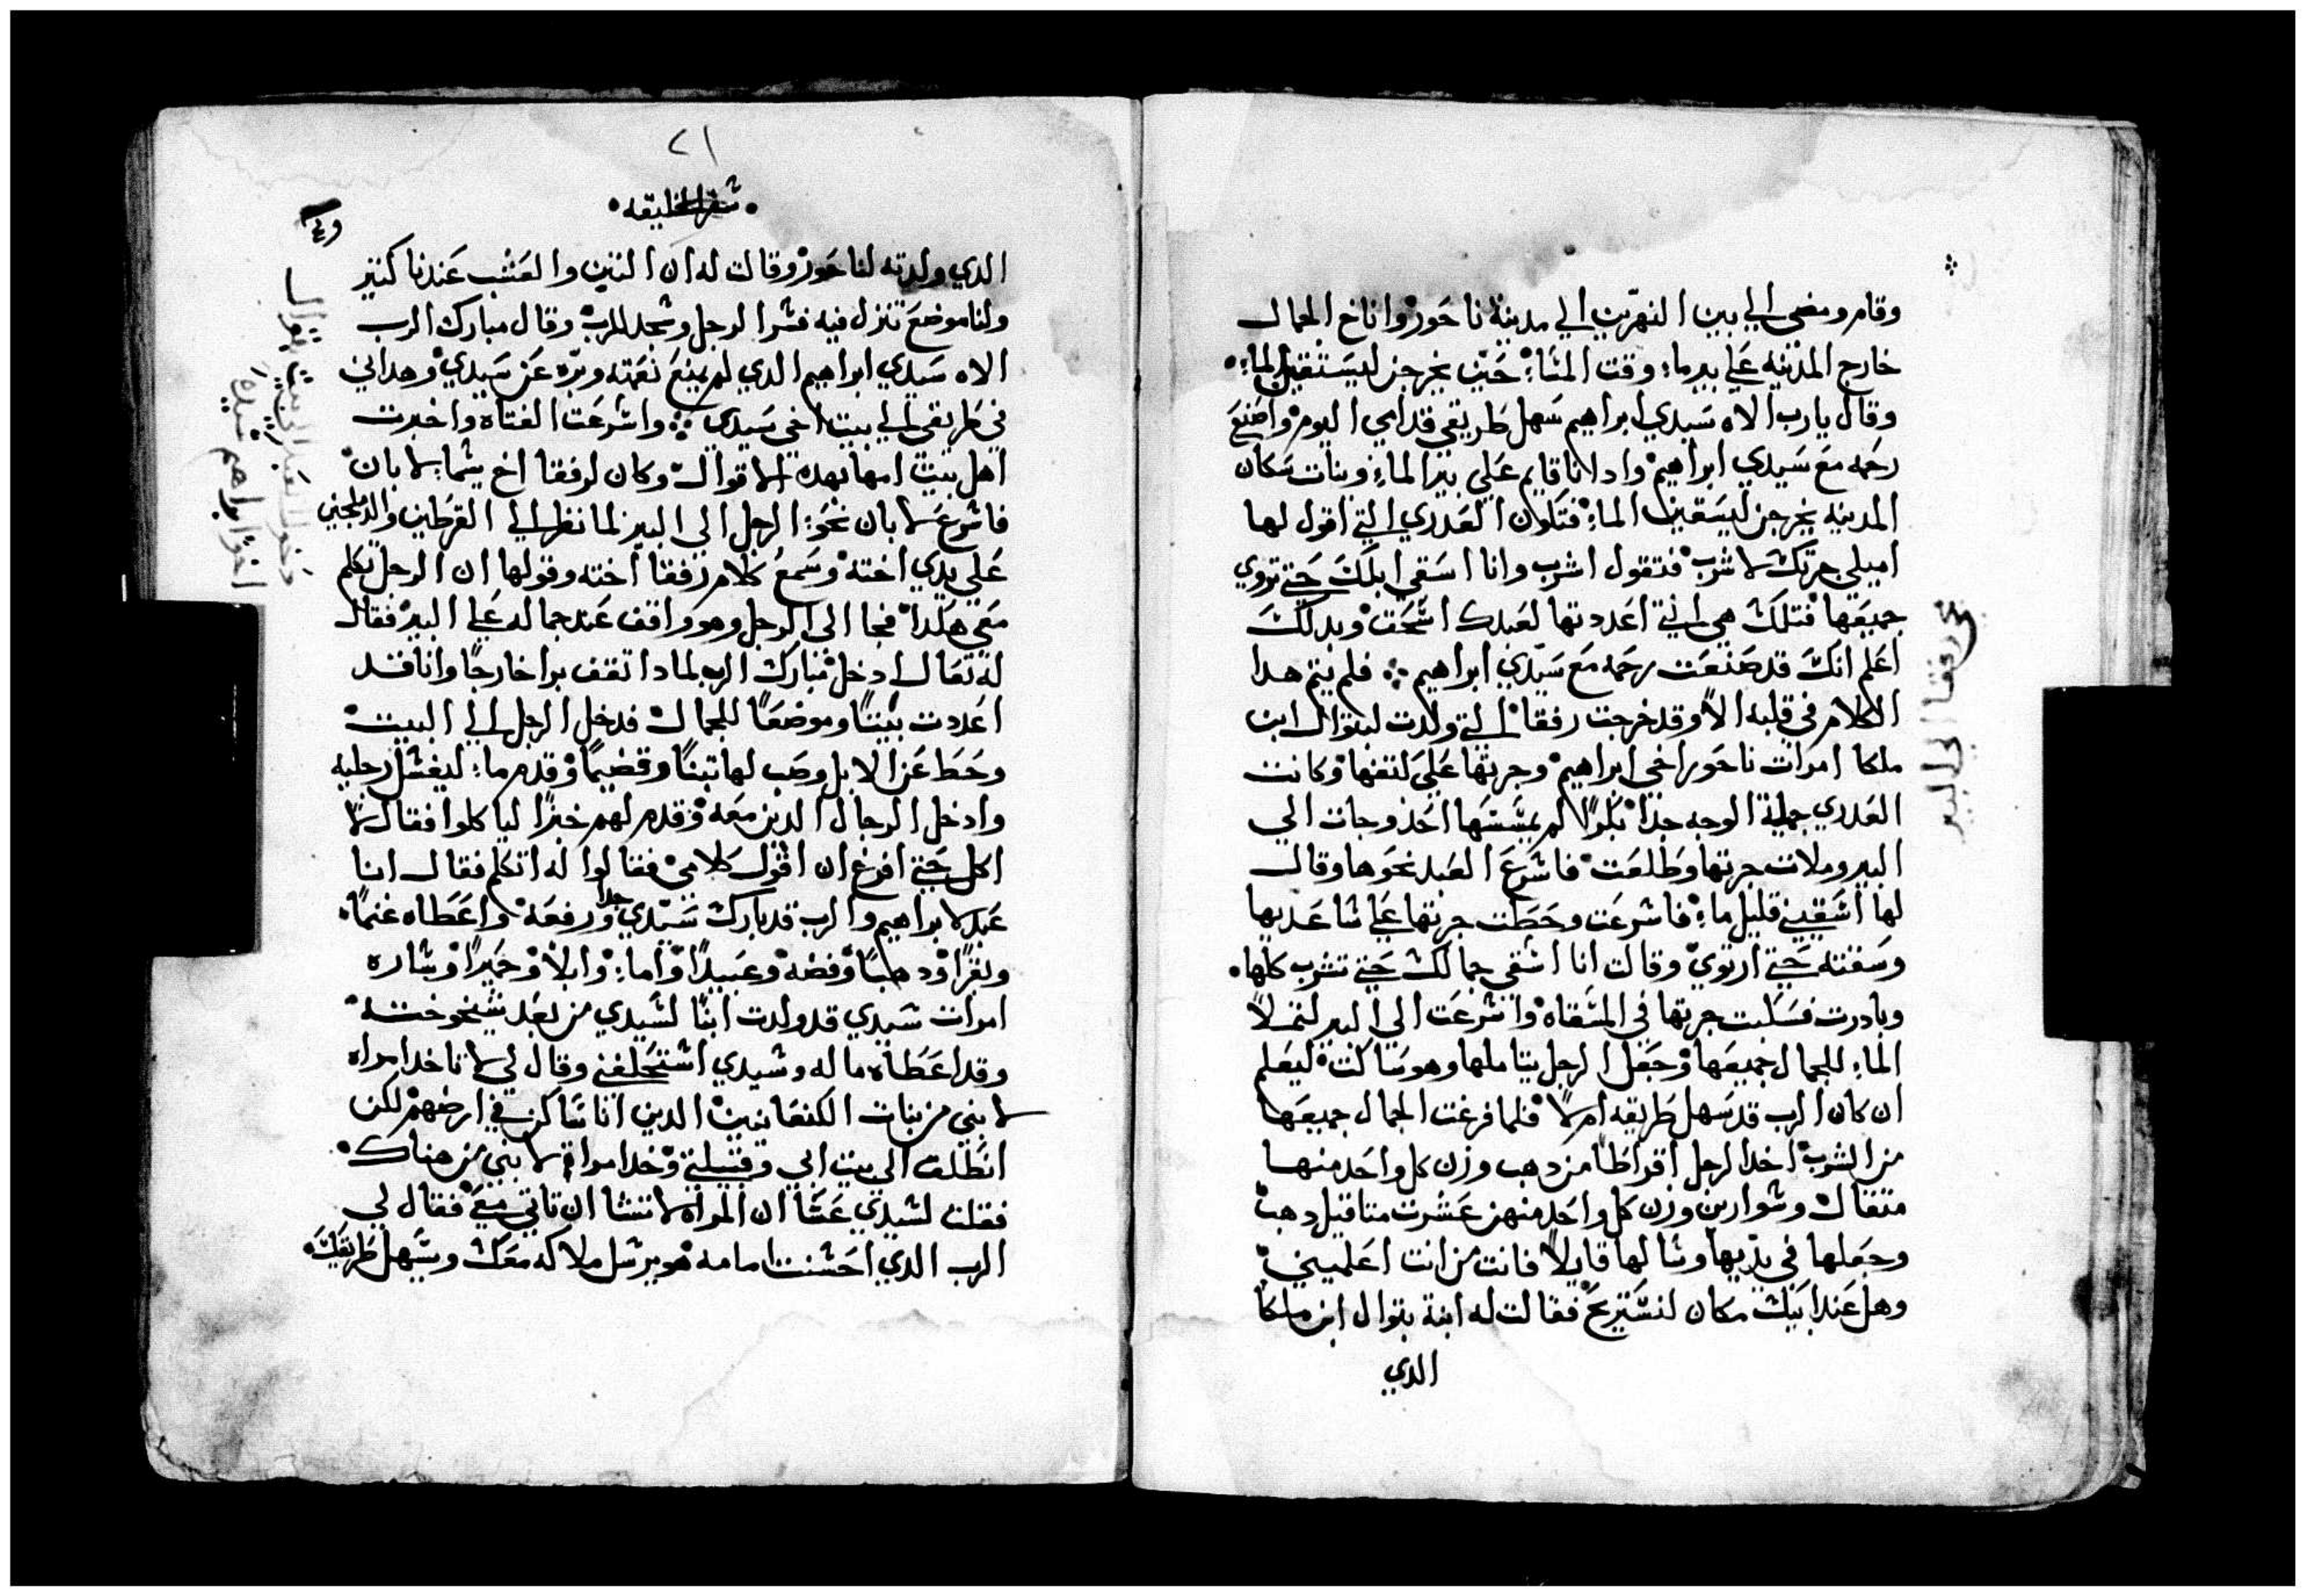 وقام ومضي الي بين النهرين الي مدينة ناحور واناخ الجمال
خارج المدينه علي بير ماء وقت المسًا حين يخرجن ليستقين الماء
وقال يارب الاه سيدي ابراهيم سهل طريقي قدامي اليوم واصنع
رحمه مع سيدي ابراهيم وادا انا قايم علي بير الماء وبنات سكان
المدينه يخرجن ليسقين الماء فتكون العدري التي اقول لها
اميلي جرتك لاشرب فتقول اشرب وانا اسقي ابلك حتي تروي
جميعها فتلك هي التي اعددتها لعبدك اسحق وبدلك
اعلم انك قد صنعت رحمه مع سيدي ابراهيم فلم يتم هدا
الكلام في قلبه الا وقد خرجت رفقا التي ولدت لبتوال ابن
ملكا امرات ناحور اخي ابراهيم وجرتها علي كتفها وكانت
العدري جميلة الوجه جدا بكرا لم يمسسها احد وجات الي
البير وملات جرتها وطلعت فاسرع العبد نحوها وقال
لها اسقيني قليل ماء فاسرعت وحطت جرتها علي ساعديها
وسقته حتي ارتوي وقالت انا اسقي جمالك حتي تشرب كلها
وبادرت فسكبت جرتها في المسقاه واسرعت الي البير لتملا
الماء للجمال جميعها وجعل الرجل يتاملها وهو ساكت ليعلم
ان كان الرب قد سهل طريقه ام لا فلما فرغت الجمال جميعها
من الشرب اخد الرجل اقراطا من دهب وزن كل واحد منها
متقال وسوارين وزن كل واحد منهن عشرت متاقيل دهب
وجعلها في يديها وسالها قايلا فانت من انت اعلميني
وهل عند ابيك مكان لنستريح فقالت له ابنة بتوال ابن ملكا
الدي
مجي رفقا الي البير
٢١
سفر الخليقه
الدي ولدته لناحور وقالت له ان التبن والعشب عندنا كتير
ولنا موضع تنزل فيه فسر الرجل وسجد للرب وقال مبارك الرب
الاه سيدي ابراهيم الدي لم يمنع نعمته وبره عن سيدي وهداني
في طريقي الي بيت اخي سيدي واسرعت الفتاه واخبرت
اهل بيت امها بهده الاقوال وكان لرفقا اخ يسما لابان
فاسرع لابان نحو الرجل الي البير لما نظر الي القرطين والدملجين
علي يدي اخته وسمع كلام رفقا اخته وقولها ان الرجل تكلم
معي هكدا فجا الي الرجل وهو واقف عند جماله علي البير فقال
له تعال ادخل مبارك الرب لمادا تقف برا خارجا وانا قد
اعددت بيتا وموضعا للجمال فدخل الرجل الي البيت
وحط عن الابل وصب لها تبنا وقضيما وقدم ماء ليغسل رجليه
وادخل الرجال الدين معه وقدم لهم خبزا لياكلوا فقال لا
اكل حتي افرغ ان اقول كلامي فقالوا له اتكلم فقال انا
عبد لابراهيم والرب قد بارك سيدي جدا ورفعه واعطاه غنما
وبقرا ودهبا وفضه وعبيدا واماء وابلا وحميرا وساره
امرات سيدي قد ولدت ابنا لسيدي من بعد شيخوخته
وقد اعطاه ماله وسيدي استحلفني وقال لي لا تاخد امراه
لابني من بنات الكنعانيين الدين انا ساكن في ارضهم لكن
انطلق الي بيت ابي وقبيلتي وخد امراة لابني من هناك
فقلت لسيدي عسا ان المراه لا تشا ان تاتي معي فقال لي
الرب الدي احسنت امامه هو يرسل ملاكه معك ويسهل طريقك
دخول العبد الي بيت بتوال
اخو ابراهيم سيده